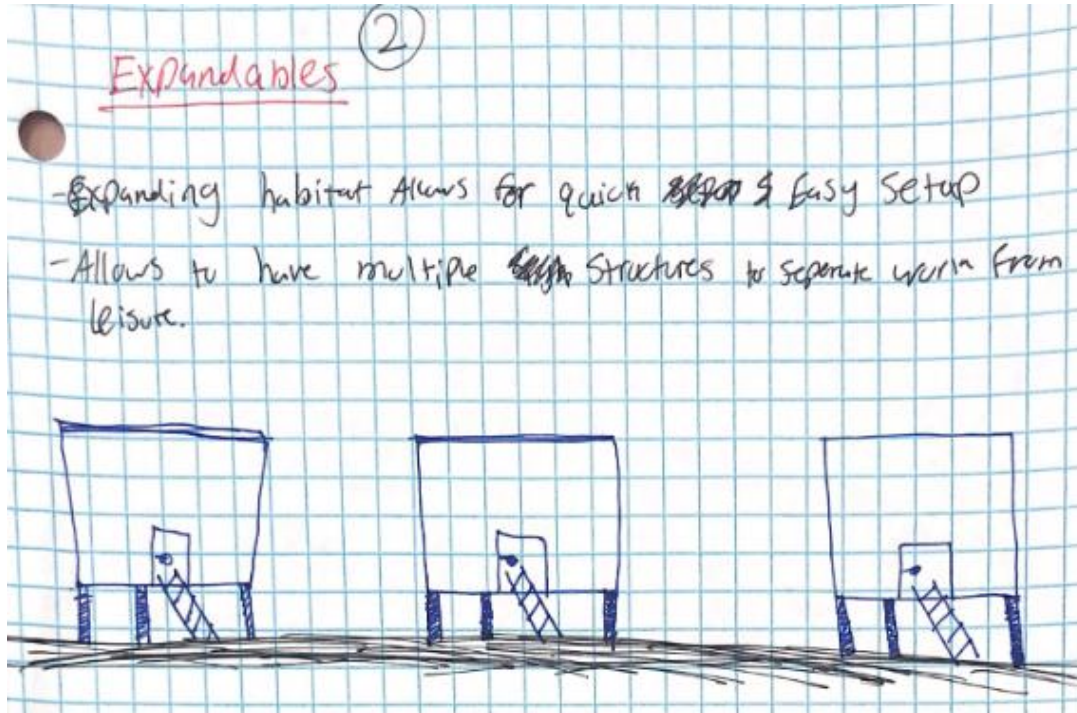 ②
Expandables
-Expanding habitat Allows for quick & Easy Setup
-Allows to have multiple Structures to Seperate work From
leisure.